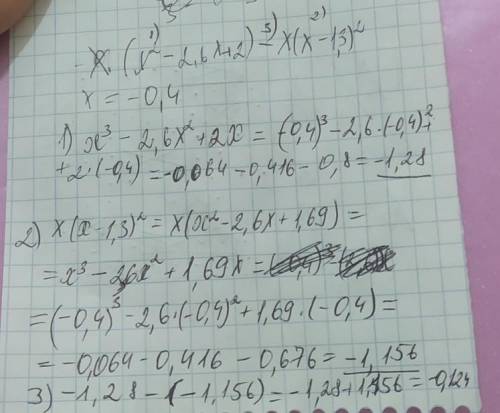 x(x² - 2,6x+2) - x(x - 1,3)²
1) 3) 2)
x = -0,4
1) x³ - 2,6x² + 2x = (-0,4)³ - 2,6·(-0,4)² +
+ 2·(-0,4) = -0,064 - 0,416 - 0,8 = -1,28
2) x(x - 1,3)² = x(x² - 2,6x + 1,69) =
= x³ - 2,6x² + 1,69x =
= (-0,4)³ - 2,6·(-0,4)² + 1,69·(-0,4) =
= -0,064 - 0,416 - 0,676 = -1,156
3) -1,28 - (-1,156) = -1,28 + 1,156 = -0,124